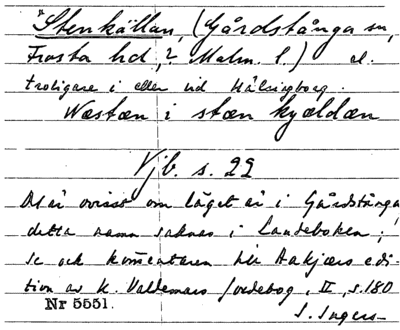 *Stenkällan, (Gårdstånga sn,
Frosta hd, ? Malm. l.) el.
troligare i eller vid Hälsingborg.
Wæstæn i stæn kyældæn
Vjb. s. 22
Det är ovisst om läget är i Gårdstånga
detta namn saknas i Landeboken;
se och kommentaren till Aakjærs edi-
tion av K. Valdemars Jordebog, II, s. 180
Nr 5551.
S. Ingers